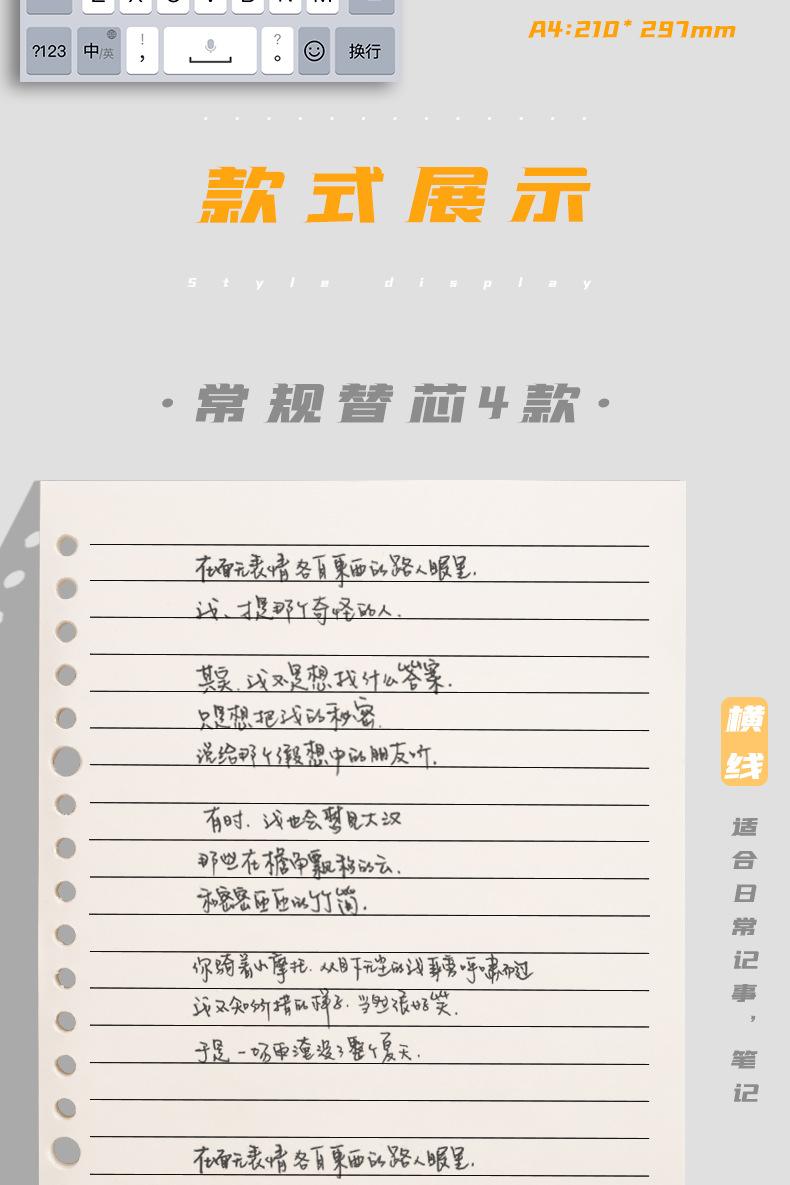 Z X C V B N M
A4:210* 297mm
?123 中/英 ! , ? 。 换行
款式展示
Style display
·常规替芯4款·
在面无表情各自東西的路人眼里.
我、才是那个奇怪的人.
其实.我不是想找什么答案.
只是想把我的秘密.
说给那个假想中的朋友听.
有时.我也会梦見大汉
那些在檐角飄移的云.
和密密匝匝的竹简.
你骑着小摩托.从目下无尘的我耳旁呼啸而过
我不知所措的样子.当然很好笑.
于是一场雨淹没了整个夏天.
在面无表情各自東西的路人眼里.
横线
适合日常记事，笔记